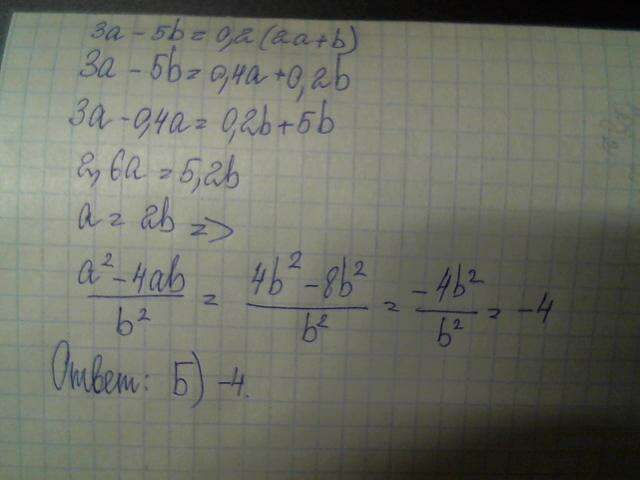 3a - 5b = 0,2 (2a + b)
3a - 5b = 0,4a + 0,2b
3a - 0,4a = 0,2b + 5b
2,6a = 5,2b
a = 2b =>
(a² - 4ab)/b² = (4b² - 8b²)/b² = (-4b²)/b² = -4
Ответ: Б) -4.